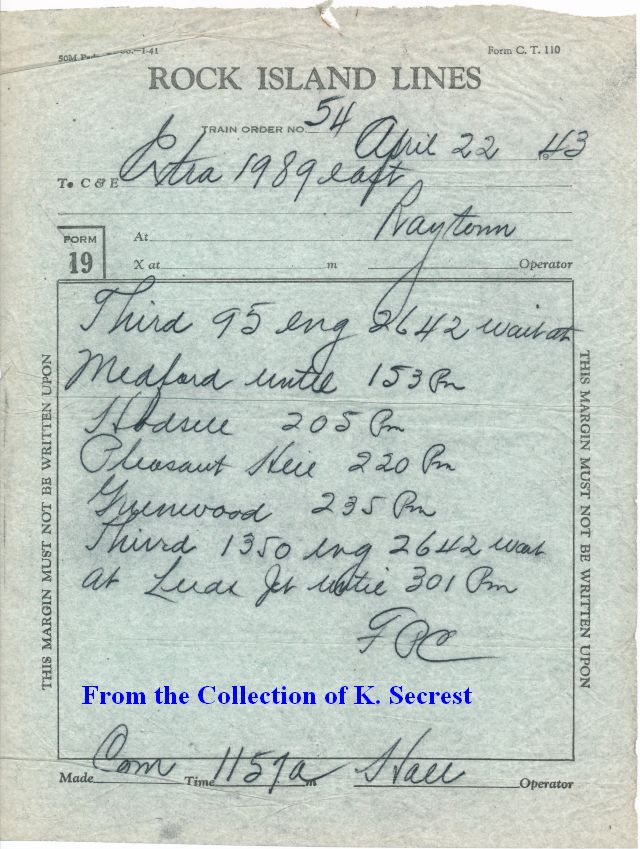 50M 1-41 Form C. T. 110
ROCK ISLAND LINES
TRAIN ORDER NO. 54 April 22 1943
To C & E Extra 1989 east
At Raytown
X at m Operator
FORM
19
Third 95 eng 2642 wait at
Medford until 153 Pm
205 Pm
Pleasant Hill 220 Pm
Greenwood 235 Pm
Third 1350 eng 2642 wait
at Leeds Jct until 301 Pm
From the Collection of K. Secrest
Made Com Time 1157a m Hall Operator
THIS MARGIN MUST NOT BE WRITTEN UPON
THIS MARGIN MUST NOT BE WRITTEN UPON